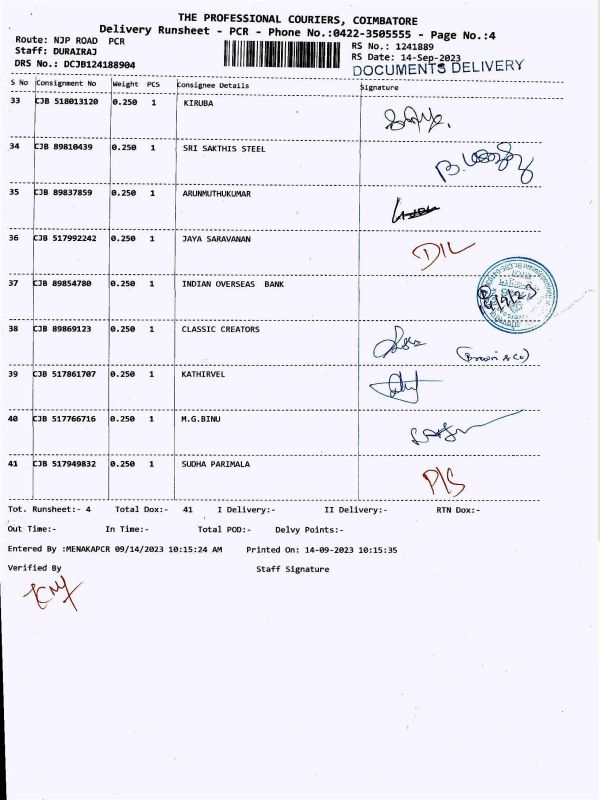 THE PROFESSIONAL COURIERS, COIMBATORE
Delivery Runsheet - PCR - Phone No.:0422-3505555 - Page No.:4
Route: NJP ROAD PCR RS No.: 1241889
Staff: DURAIRAJ RS Date: 14-Sep-2023
DRS No.: DCJB124188904 DOCUMENTS DELIVERY
S No Consignment No Weight PCS Consignee Details Signature
33 CJB 518013120 0.250 1 KIRUBA
34 CJB 89810439 0.250 1 SRI SAKTHIS STEEL
35 CJB 89837859 0.250 1 ARUNMUTHUKUMAR
36 CJB 517992242 0.250 1 JAYA SARAVANAN D/L
37 CJB 89854780 0.250 1 INDIAN OVERSEAS BANK
38 CJB 89869123 0.250 1 CLASSIC CREATORS
39 CJB 517861707 0.250 1 KATHIRVEL
40 CJB 517766716 0.250 1 M.G.BINU
41 CJB 517949832 0.250 1 SUDHA PARIMALA P/S
Tot. Runsheet:- 4 Total Dox:- 41 I Delivery:- II Delivery:- RTN Dox:-
Out Time:- In Time:- Total POD:- Delvy Points:-
Entered By :MENAKAPCR 09/14/2023 10:15:24 AM Printed On: 14-09-2023 10:15:35
Verified By Staff Signature